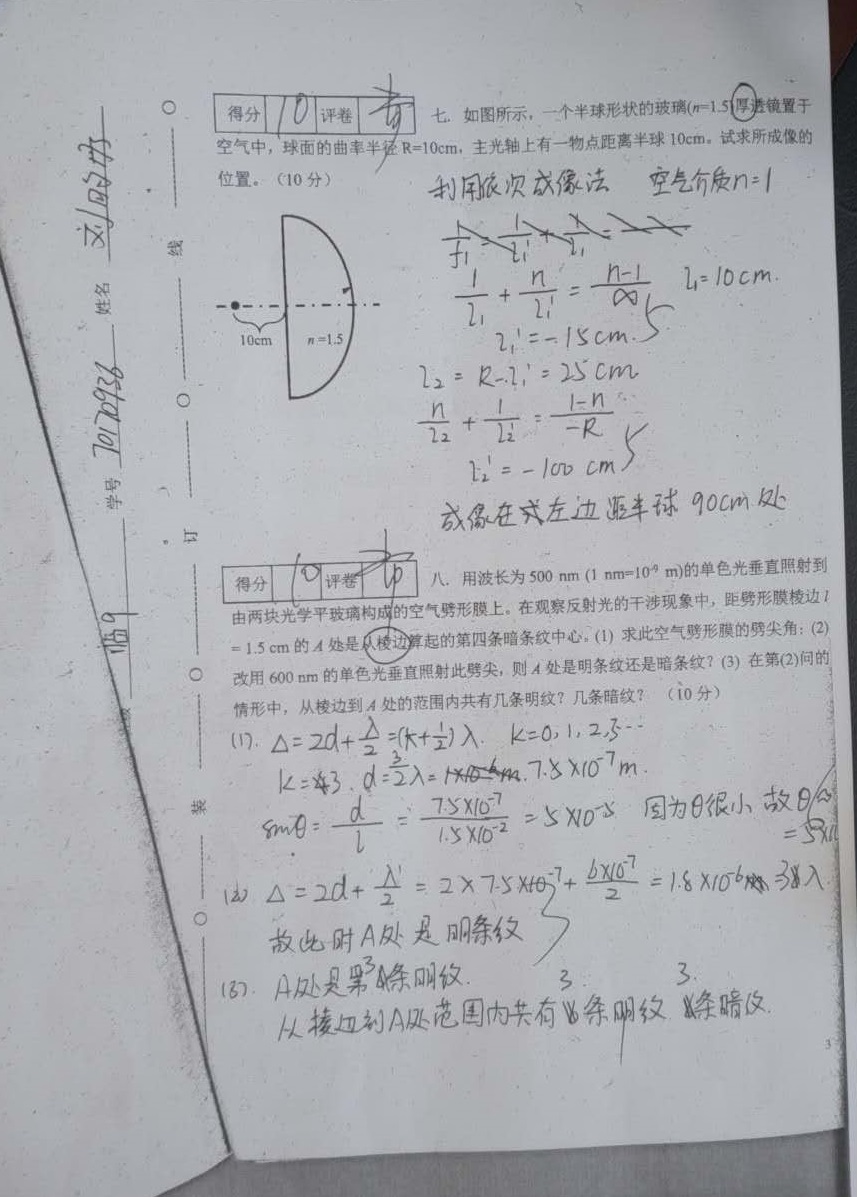 得分 10 评卷
七. 如图所示，一个半球形状的玻璃(n=1.5)厚透镜置于
空气中，球面的曲率半径 R=10cm，主光轴上有一物点距离半球 10cm。试求所成像的
位置。（10 分）
利用依次成像法 空气介质n=1
1/l₁ + n/l₁' = (n-1)/∞ l₁=10cm.
l₁'=-15cm.
l₂ = R-l₁' = 25cm
n/l₂ + 1/l₂' = (1-n)/-R
l₂' = -100 cm
成像在左边距半球 90cm 处
10cm
n=1.5
得分 10 评卷
八. 用波长为 500 nm (1 nm=10⁻⁹ m)的单色光垂直照射到
由两块光学平玻璃构成的空气劈形膜上。在观察反射光的干涉现象中，距劈形膜棱边 l
= 1.5 cm 的 A 处是从棱边算起的第四条暗条纹中心。(1) 求此空气劈形膜的劈尖角；(2)
改用 600 nm 的单色光垂直照射此劈尖，则 A 处是明条纹还是暗条纹？(3) 在第(2)问的
情形中，从棱边到 A 处的范围内共有几条明纹？几条暗纹？ （10 分）
(1). Δ=2d+λ/2=(k+1/2)λ. k=0,1,2,3…
k=3. d=3/2λ= 7.5×10⁻⁷m.
sinθ= d/l = 7.5×10⁻⁷/1.5×10⁻² = 5×10⁻⁵ 因为θ很小 故θ≈
(2) Δ=2d+λ'/2 = 2×7.5×10⁻⁷+ 6×10⁻⁷/2 = 1.8×10⁻⁶ =3λ
故此时A处是明条纹
(3). A处是第3条明纹.
从棱边到A处范围内共有3条明纹 3条暗纹.
线
订
装
姓名
学号 70170936
临9
3